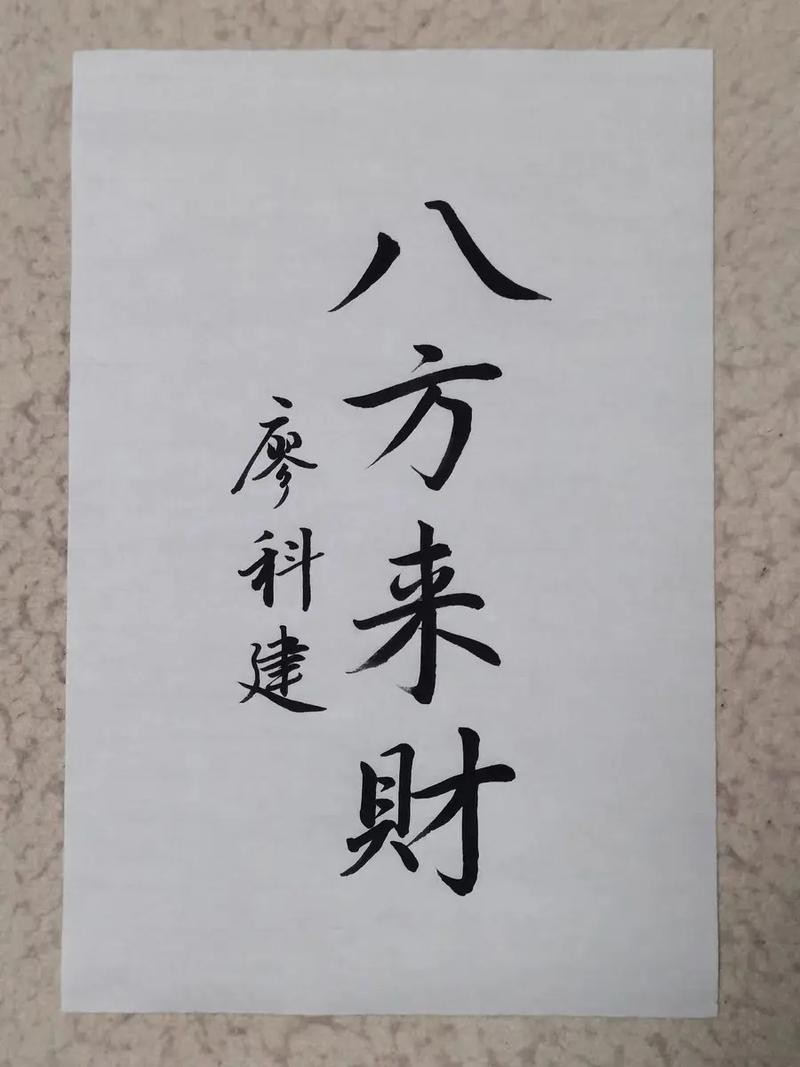 八方来財
廖科建